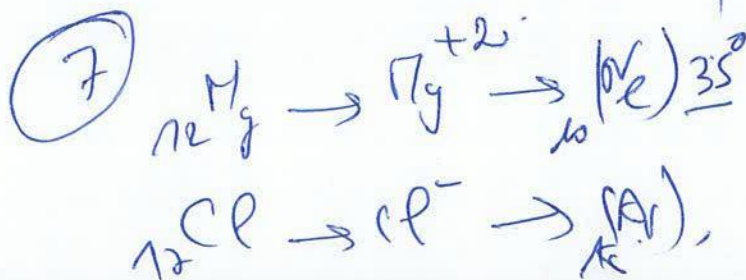 7
₁₂Mg → Mg⁺² → ₁₀(Ne) 3S⁰
₁₇Cl → Cl⁻ → (Ar),